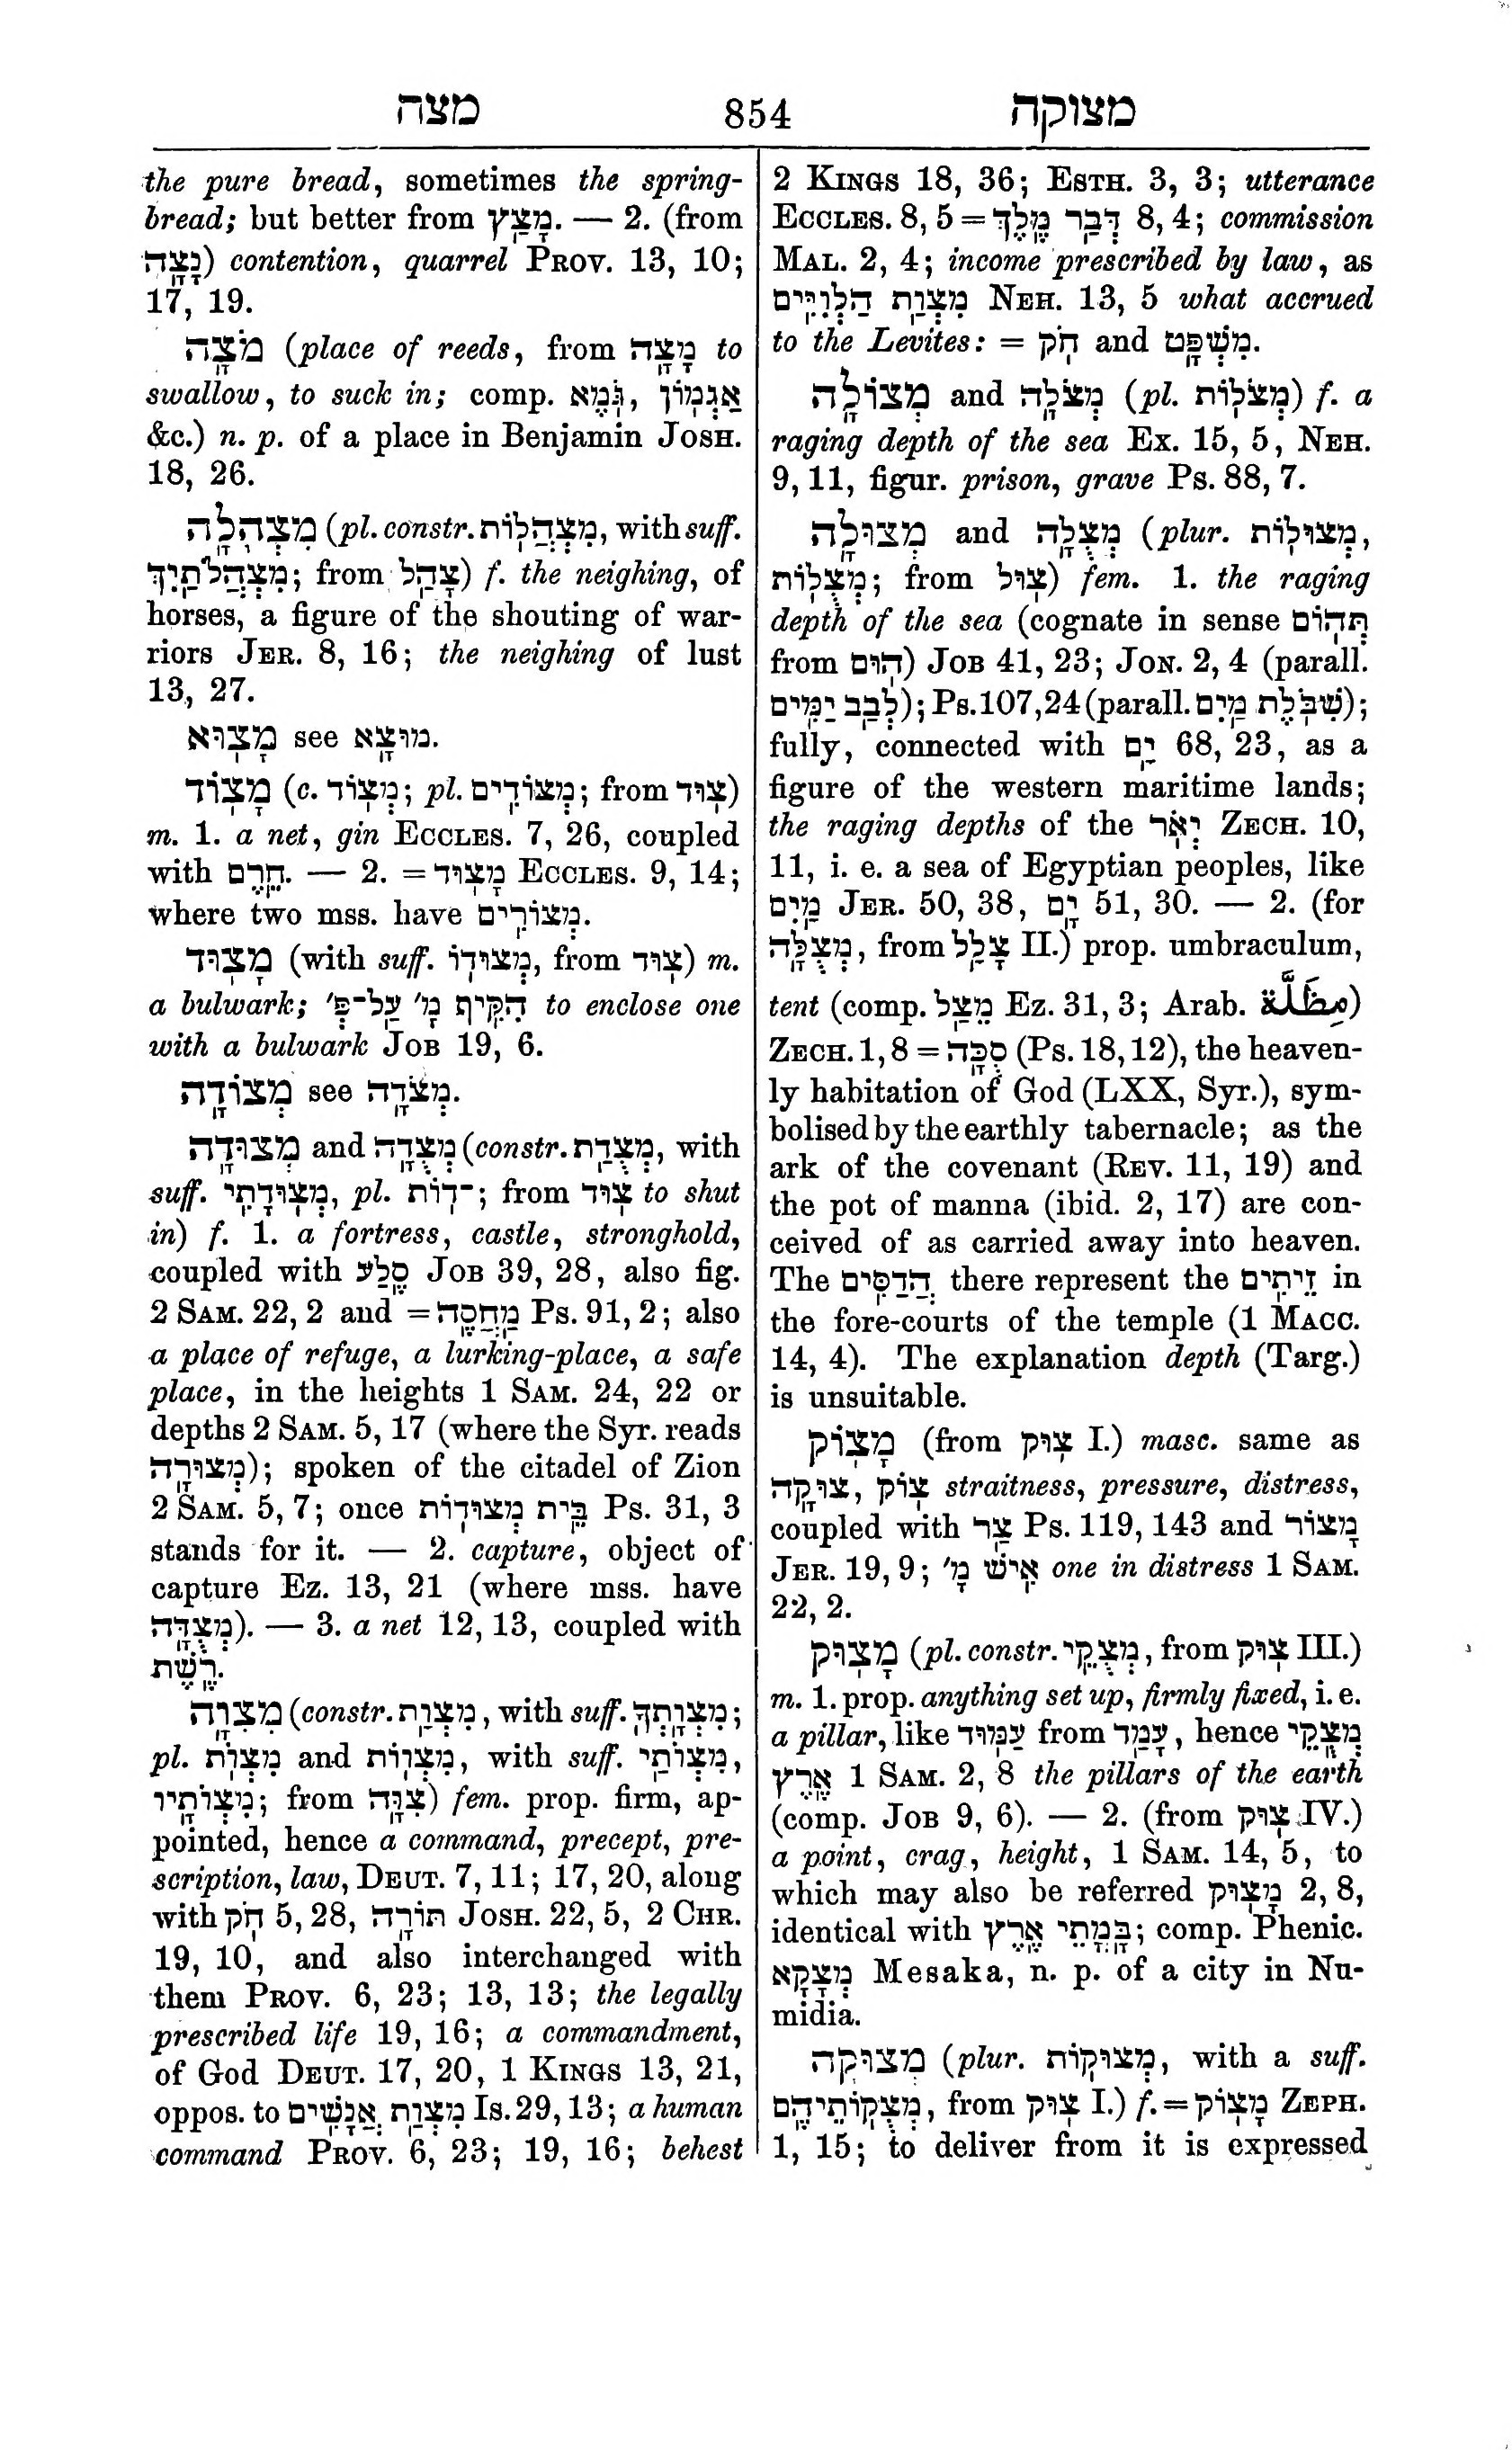 מצה 854 מצוקה
the pure bread, sometimes the spring-
bread; but better from מָצַץ. — 2. (from
נָצָה) contention, quarrel PROV. 13, 10;
17, 19.
מֹצָה (place of reeds, from מָצָה to
swallow, to suck in; comp. גֹּמֶא, אַגְמוֹן
&c.) n. p. of a place in Benjamin JOSH.
18, 26.
מִצְהָלָה (pl. constr. מִצְהֲלוֹת, with suff.
מִצְהֲלֹתַיִךְ; from צָהַל) f. the neighing, of
horses, a figure of the shouting of war-
riors JER. 8, 16; the neighing of lust
13, 27.
מָצוּא see מוּצָא.
מָצוֹד (c. מְצוֹד; pl. מְצוֹדִים; from צוּד)
m. 1. a net, gin ECCLES. 7, 26, coupled
with חֵרֶם. — 2. = מָצוּד ECCLES. 9, 14;
where two mss. have מְצוֹרִים.
מָצוּד (with suff. מְצוּדוֹ, from צוּד) m.
a bulwark; הִקִּיף מָ' עַל־פְּ' to enclose one
with a bulwark JOB 19, 6.
מְצוֹדָה see מְצֹדָה.
מְצוּדָה and מְצֻדָה (constr. מְצֻדַת, with
suff. מְצוּדָתִי, pl. ־דוֹת; from צוּד to shut
in) f. 1. a fortress, castle, stronghold,
coupled with סֶלַע JOB 39, 28, also fig.
2 SAM. 22, 2 and = מַחְסֶה Ps. 91, 2; also
a place of refuge, a lurking-place, a safe
place, in the heights 1 SAM. 24, 22 or
depths 2 SAM. 5, 17 (where the Syr. reads
מְצוּרָה); spoken of the citadel of Zion
2 SAM. 5, 7; once בֵּית מְצוּדוֹת Ps. 31, 3
stands for it. — 2. capture, object of
capture Ez. 13, 21 (where mss. have
מְצֻדָּה). — 3. a net 12, 13, coupled with
רֶשֶׁת.
מִצְוָה (constr. מִצְוַת, with suff. מִצְוָתְךָ;
pl. מִצְוֹת and מִצְווֹת, with suff. מִצְוֹתַי,
מִצְוֹתָיו; from צָוָּה) fem. prop. firm, ap-
pointed, hence a command, precept, pre-
scription, law, DEUT. 7, 11; 17, 20, along
with חֹק 5, 28, תּוֹרָה JOSH. 22, 5, 2 CHR.
19, 10, and also interchanged with
them PROV. 6, 23; 13, 13; the legally
prescribed life 19, 16; a commandment,
of God DEUT. 17, 20, 1 KINGS 13, 21,
oppos. to מִצְוַת אֲנָשִׁים Is. 29, 13; a human
command PROV. 6, 23; 19, 16; behest
2 KINGS 18, 36; ESTH. 3, 3; utterance
ECCLES. 8, 5 = דְּבַר מֶלֶךְ 8, 4; commission
MAL. 2, 4; income prescribed by law, as
מִצְוַת הַלְוִיִּים NEH. 13, 5 what accrued
to the Levites: = חֹק and מִשְׁפָּט.
מְצוֹלָה and מְצֹלָה (pl. מְצֹלוֹת) f. a
raging depth of the sea Ex. 15, 5, NEH.
9, 11, figur. prison, grave Ps. 88, 7.
מְצוּלָה and מְצֻלָה (plur. מְצוּלוֹת,
מְצֻלוֹת; from צוּל) fem. 1. the raging
depth of the sea (cognate in sense תְּהוֹם
from הוּם) JOB 41, 23; JON. 2, 4 (parall.
לְבַב יַמִּים); Ps. 107, 24 (parall. שִׁבֹּלֶת מַיִם);
fully, connected with יָם 68, 23, as a
figure of the western maritime lands;
the raging depths of the יְאֹר ZECH. 10,
11, i. e. a sea of Egyptian peoples, like
מַיִם JER. 50, 38, יָם 51, 30. — 2. (for
מְצֻלָּה, from צָלַל II.) prop. umbraculum,
tent (comp. מֵצַל Ez. 31, 3; Arab. مِظَلَّة)
ZECH. 1, 8 = סֻכָּה (Ps. 18, 12), the heaven-
ly habitation of God (LXX, Syr.), sym-
bolised by the earthly tabernacle; as the
ark of the covenant (REV. 11, 19) and
the pot of manna (ibid. 2, 17) are con-
ceived of as carried away into heaven.
The הֲדַסִּים there represent the זֵיתִים in
the fore-courts of the temple (1 MACC.
14, 4). The explanation depth (Targ.)
is unsuitable.
מָצוֹק (from צוּק I.) masc. same as
צוּקָה, צוֹק straitness, pressure, distress,
coupled with צַר Ps. 119, 143 and מָצוֹר
JER. 19, 9; אִישׁ מָ' one in distress 1 SAM.
22, 2.
מָצוּק (pl. constr. מְצֻקֵי, from צוּק III.)
m. 1. prop. anything set up, firmly fixed, i. e.
a pillar, like עַמּוּד from עָמַד, hence מְצֻקֵי
אֶרֶץ 1 SAM. 2, 8 the pillars of the earth
(comp. JOB 9, 6). — 2. (from צוּק IV.)
a point, crag, height, 1 SAM. 14, 5, to
which may also be referred מָצוּק 2, 8,
identical with בָּמֳתֵי אֶרֶץ; comp. Phenic.
מְצָקָא Mesaka, n. p. of a city in Nu-
midia.
מְצוּקָה (plur. מְצוּקוֹת, with a suff.
מְצֻקוֹתֵיהֶם, from צוּק I.) f. = מָצוֹק ZEPH.
1, 15; to deliver from it is expressed